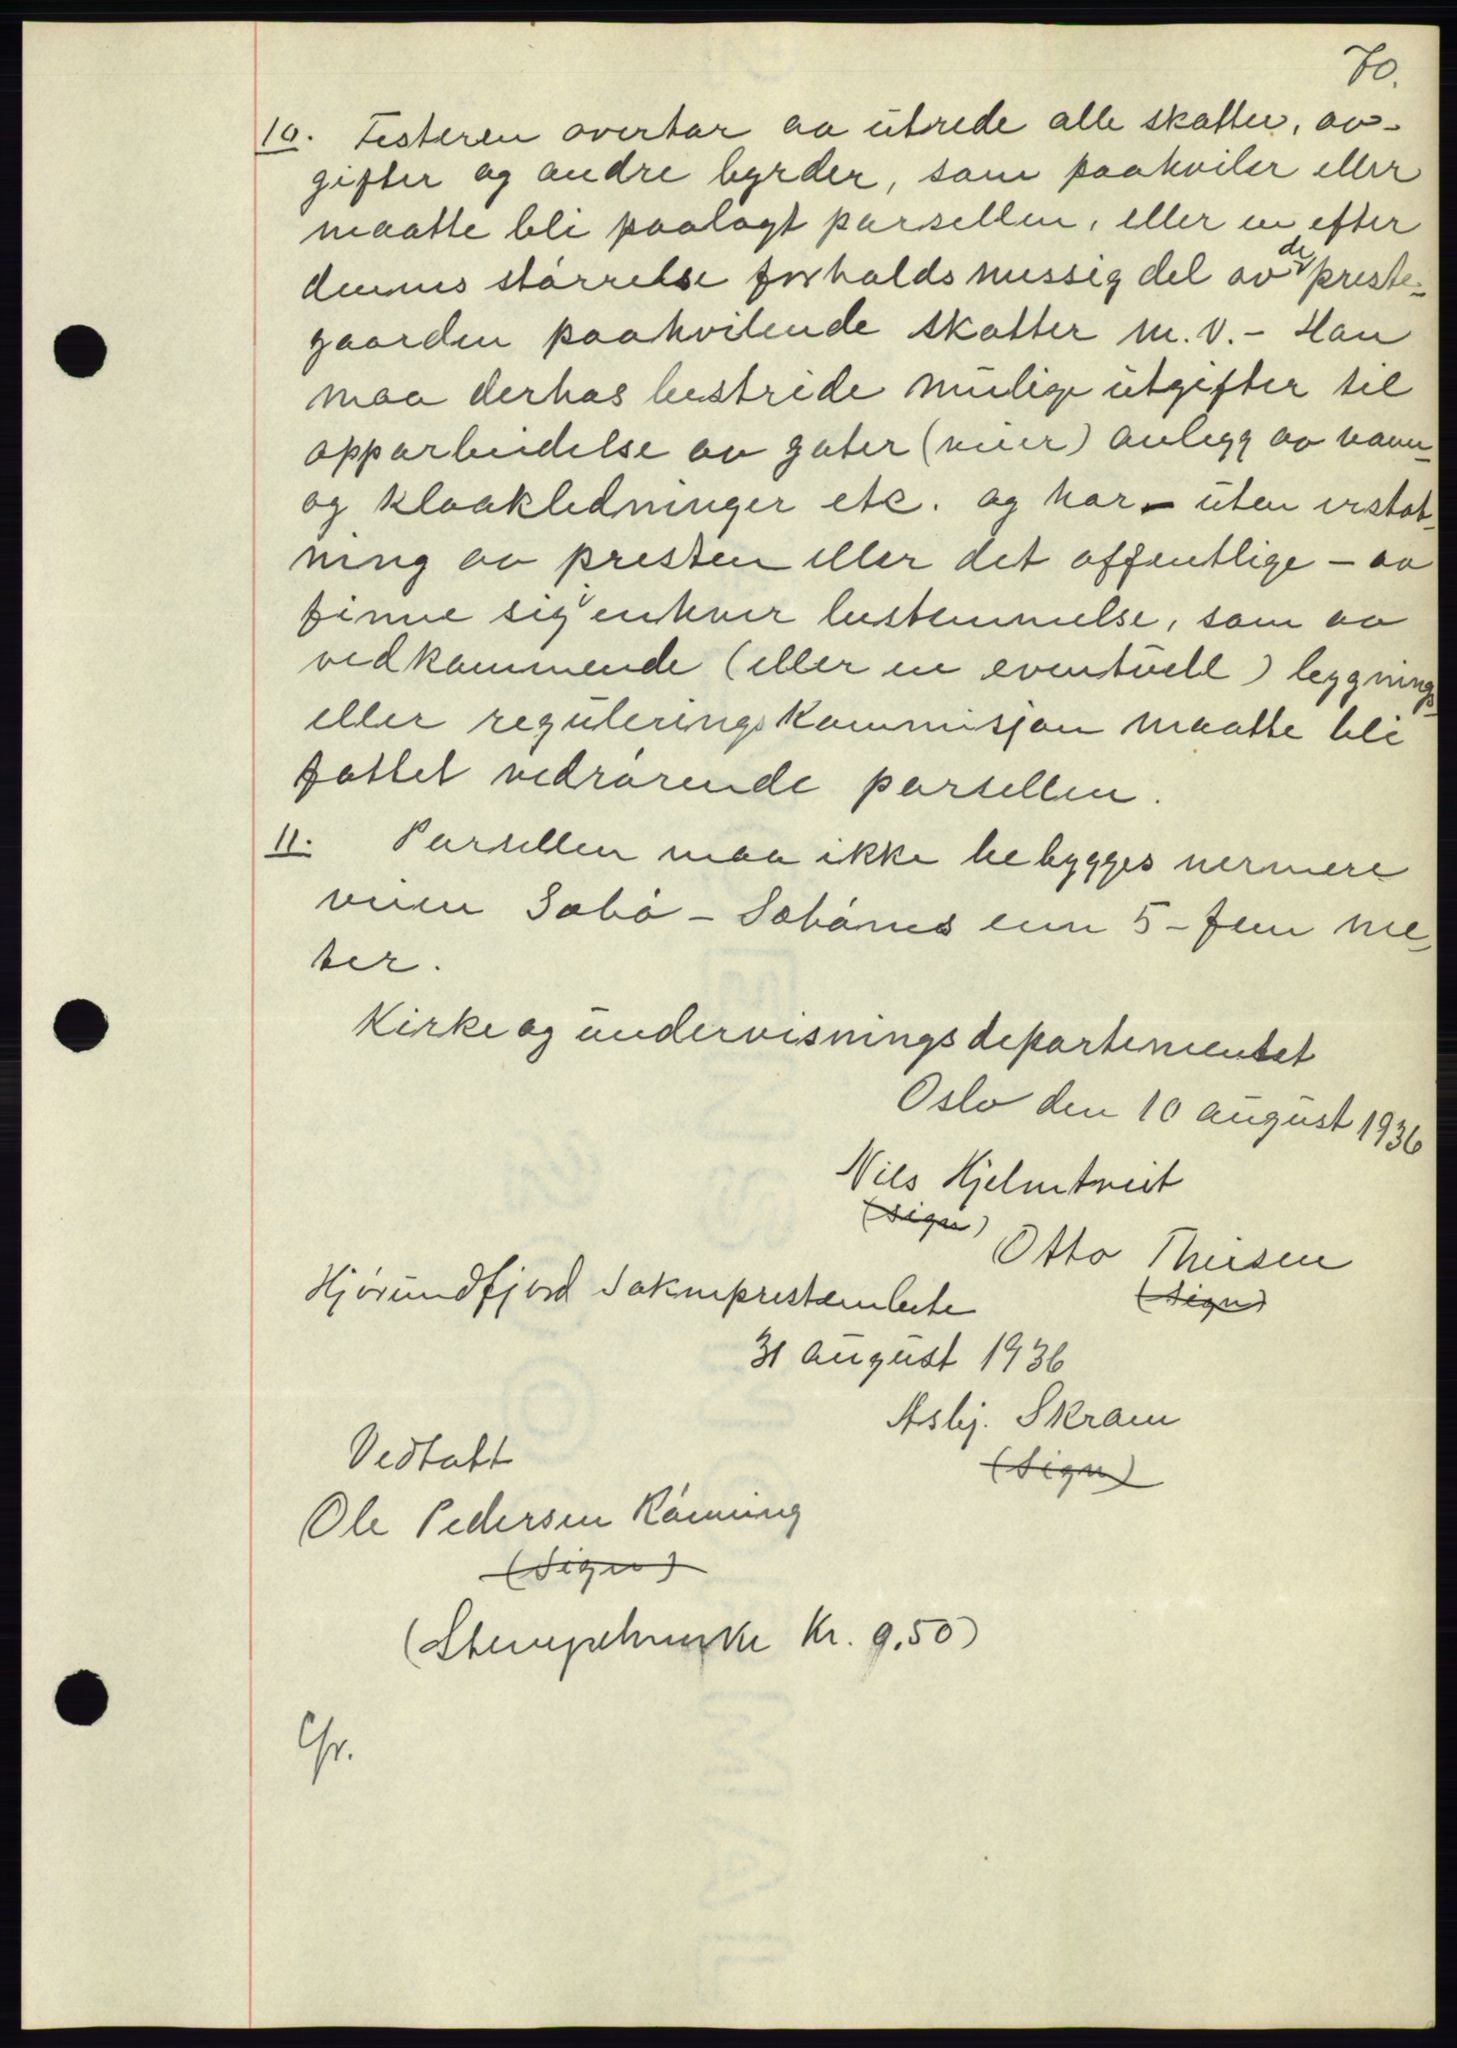 70.
10. Festeren overtar aa utrede alle skatter, av-
gifter og andre byrder, som paahviler eller
maatte bli paalagt parsellen, eller en efter
dennes størrelse forholdsmessig del av de preste-
gaarden paahvilende skatter m.v. - Han
maa derhos bestride mulige utgifter til
opparbeidelse av gater (veier) anlegg av vann-
og kloakledninger etc. og har - uten erstat-
ning av presten eller det offentlige - aa
finne sig i enhver bestemmelse, som av
vedkommende (eller en eventuell) bygnings-
eller reguleringskommisjon maatte bli
fattet vedrørende parsellen.
11. Parsellen maa ikke bebygges nermere
veien Sæbø - Sæbønes enn 5 - fem me-
ter.
Kirke og undervisningsdepartementet
Oslo den 10 august 1936
Nils Hjelmtveit
(sign)
Otto Theisen
(sign)
Hjørundfjord Sokneprestembete
31 august 1936
Asbj. Skram
(sign)
Vedtatt
Ole Pedersen Rønning
(sign)
(Stempelmerke kr. 9,50)